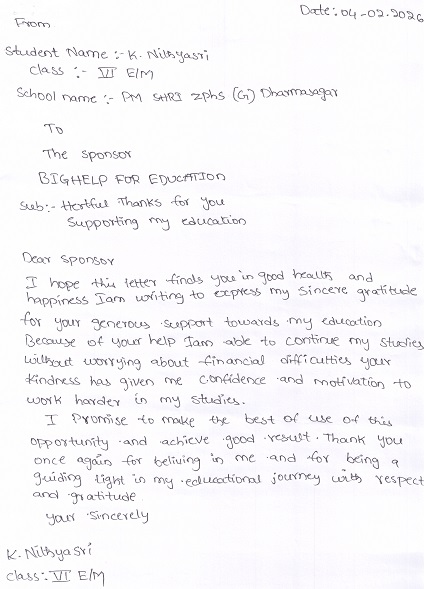 Date:04-02-2026
From
Student Name :- K. Nithyasri
class :- VI E/M
School name :- PM SHRI ZPHS (G) Dharmasagar
To
The sponsor
BIGHELP FOR EDUCATION
Sub:- Hertful Thanks for you
Supporting my education
Dear sponsor
I hope this letter finds you in good health and
happiness Iam writing to express my sincere gratitude
for your generous support towards my education
Because of your help Iam able to continue my studies
without worrying about financial difficutties your
kindness has given me confidence and motivation to
work harder in my studies.
I Promise to make the best of use of this
opportunity and achieve good result. Thank you
once again for beliving in me and for being a
guiding light in my educational journey with respect
and gratitude
your Sincerely
K. Nithyasri
class: VI E/M